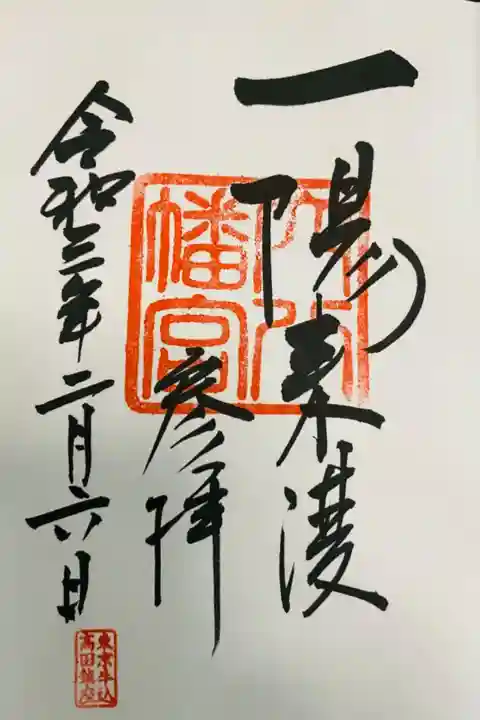 一陽来復
参拝
令和三年二月六日
穴八
幡宮
東京牛込
高田鎮座